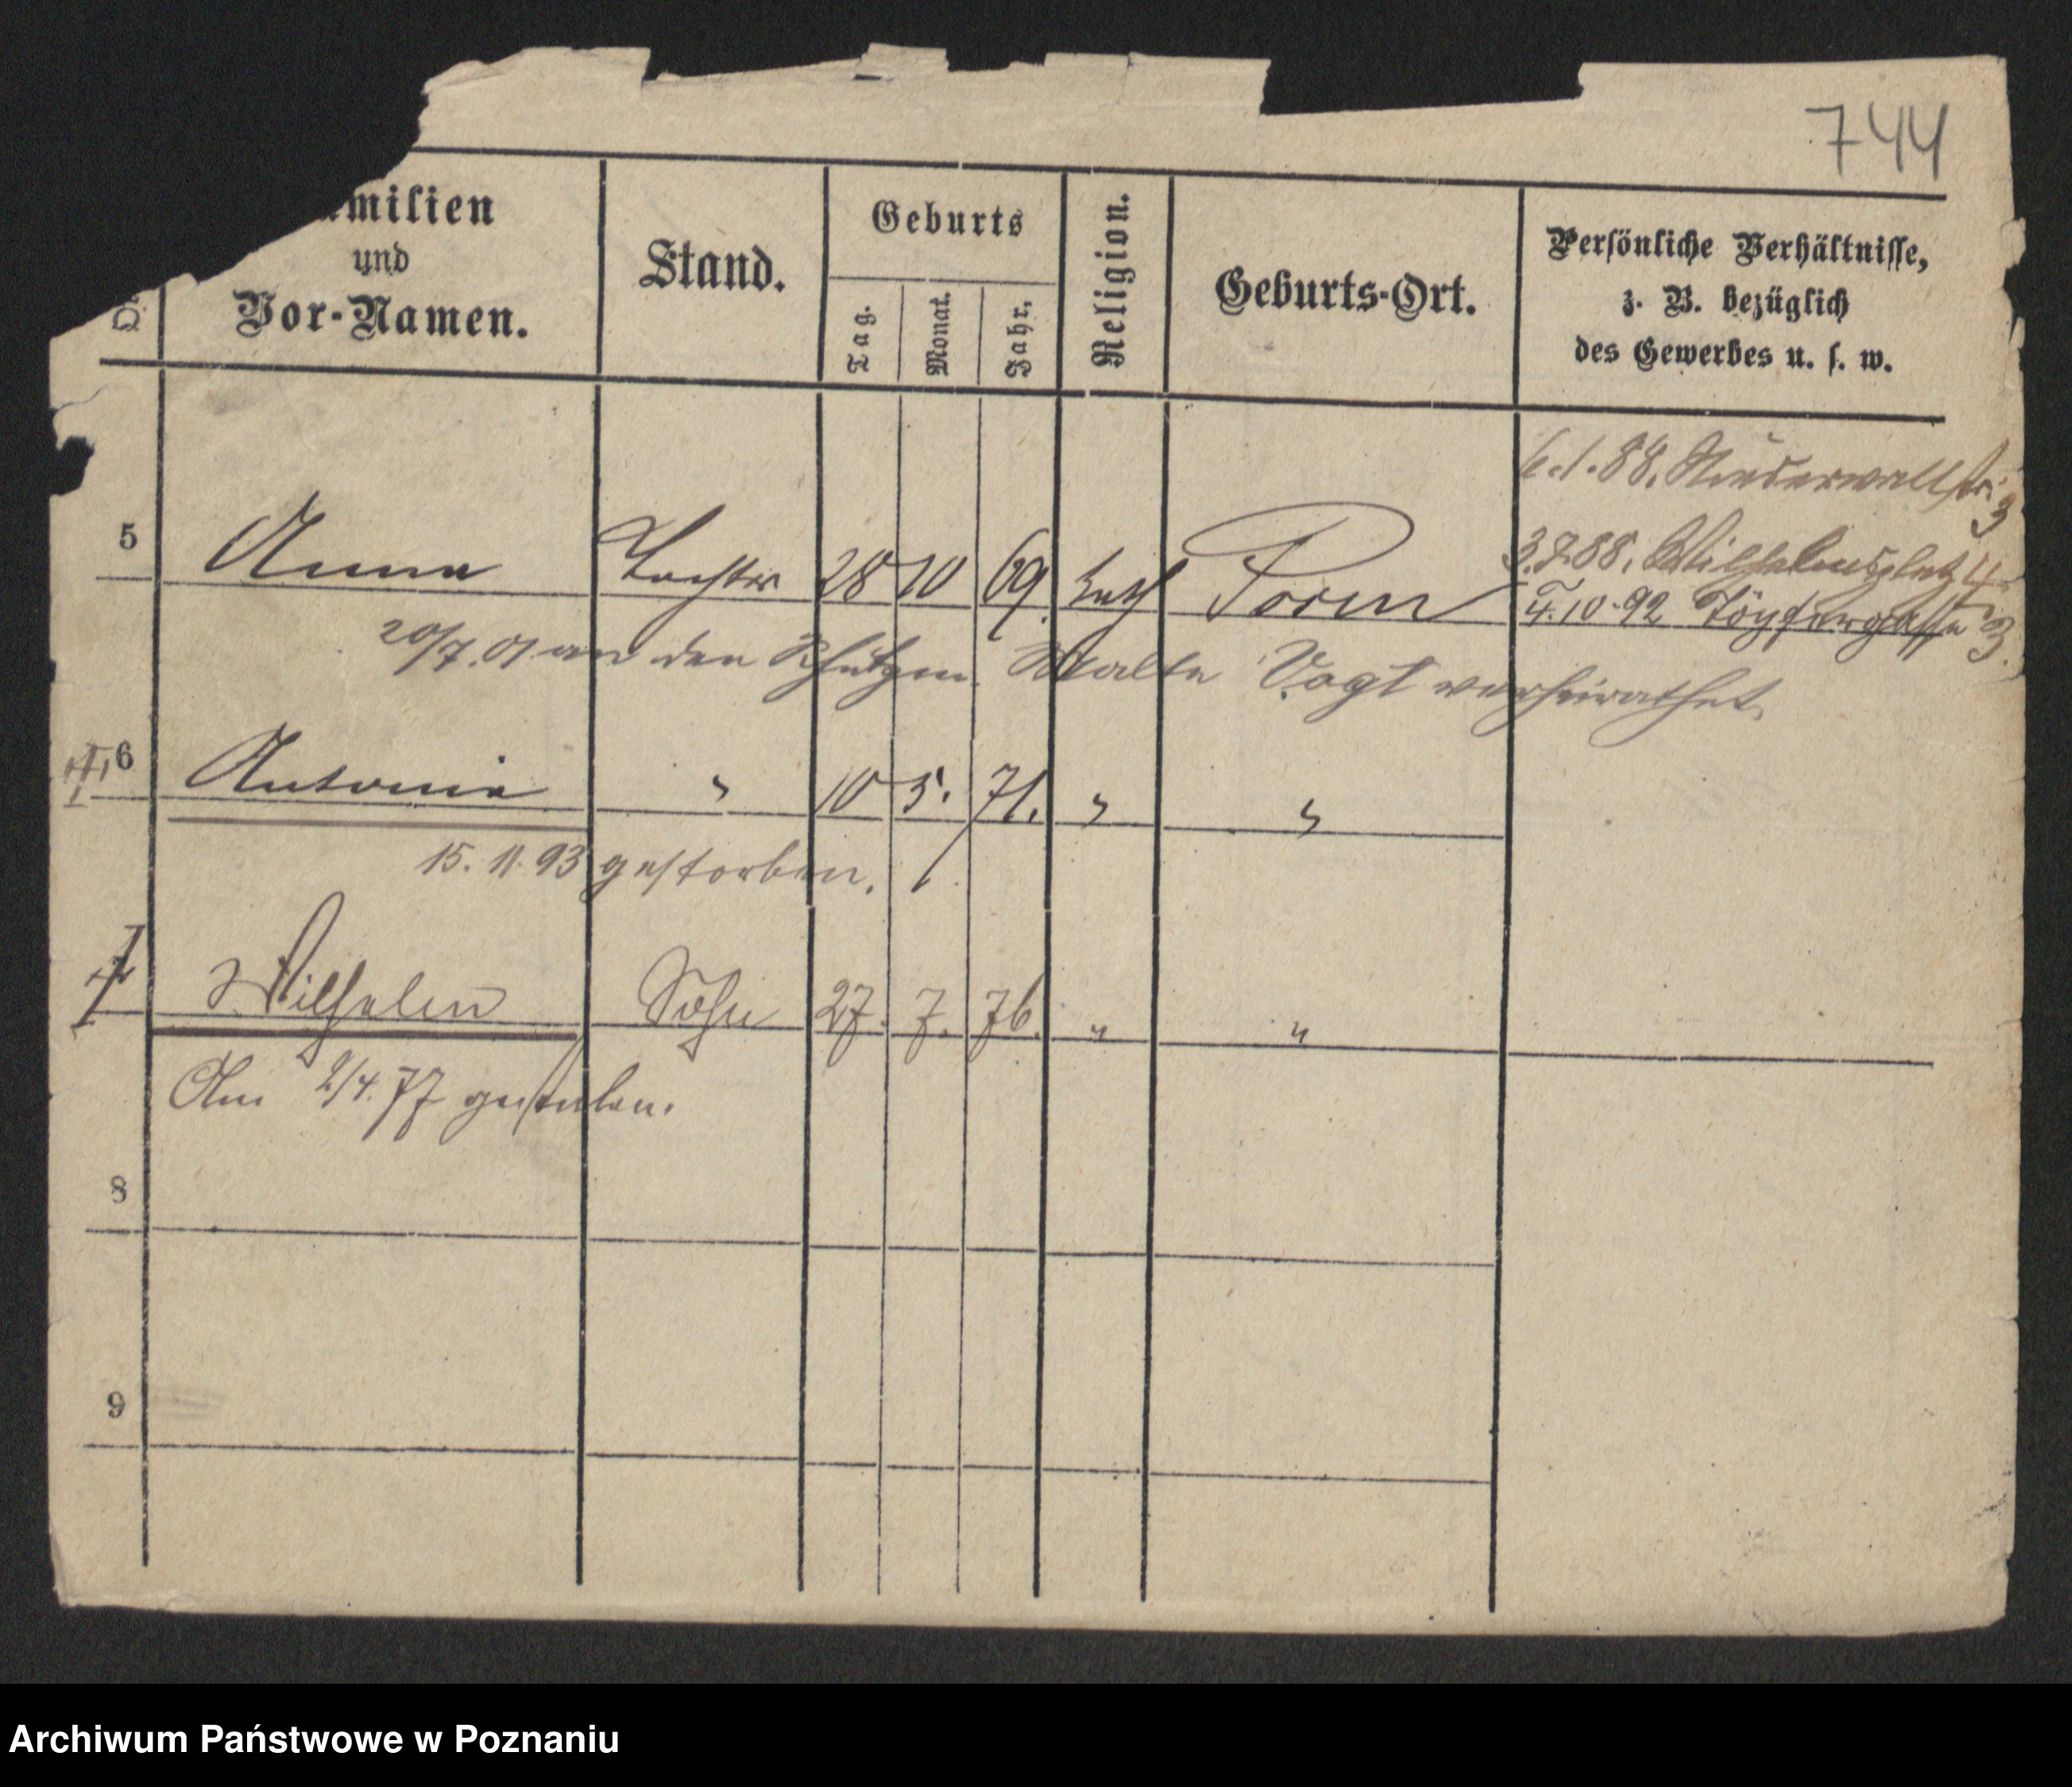 744
milien
und
Vor-Namen.
Stand.
Geburts
Tag.
Monat.
Jahr.
Religion.
Geburts-Ort.
Persönliche Verhältnisse,
z. B. bezüglich
des Gewerbes u. s. w.
6.1.88. Niederwallstr. 3
3.7.88. Wilhelmsplatz 4
5 Anna Tochter 28 10 69. kath Posen 4.10.92 Töpfergasse 3.
20/7.01 an den Walter Vogt verheirathet
6 Antonie " 10 5. 71. " "
15. 11. 93 gestorben.
7 Wilhelm Sohn 27. 7. 76. " "
Am 2/4. 77 gestorben.
8
9
Archiwum Państwowe w Poznaniu